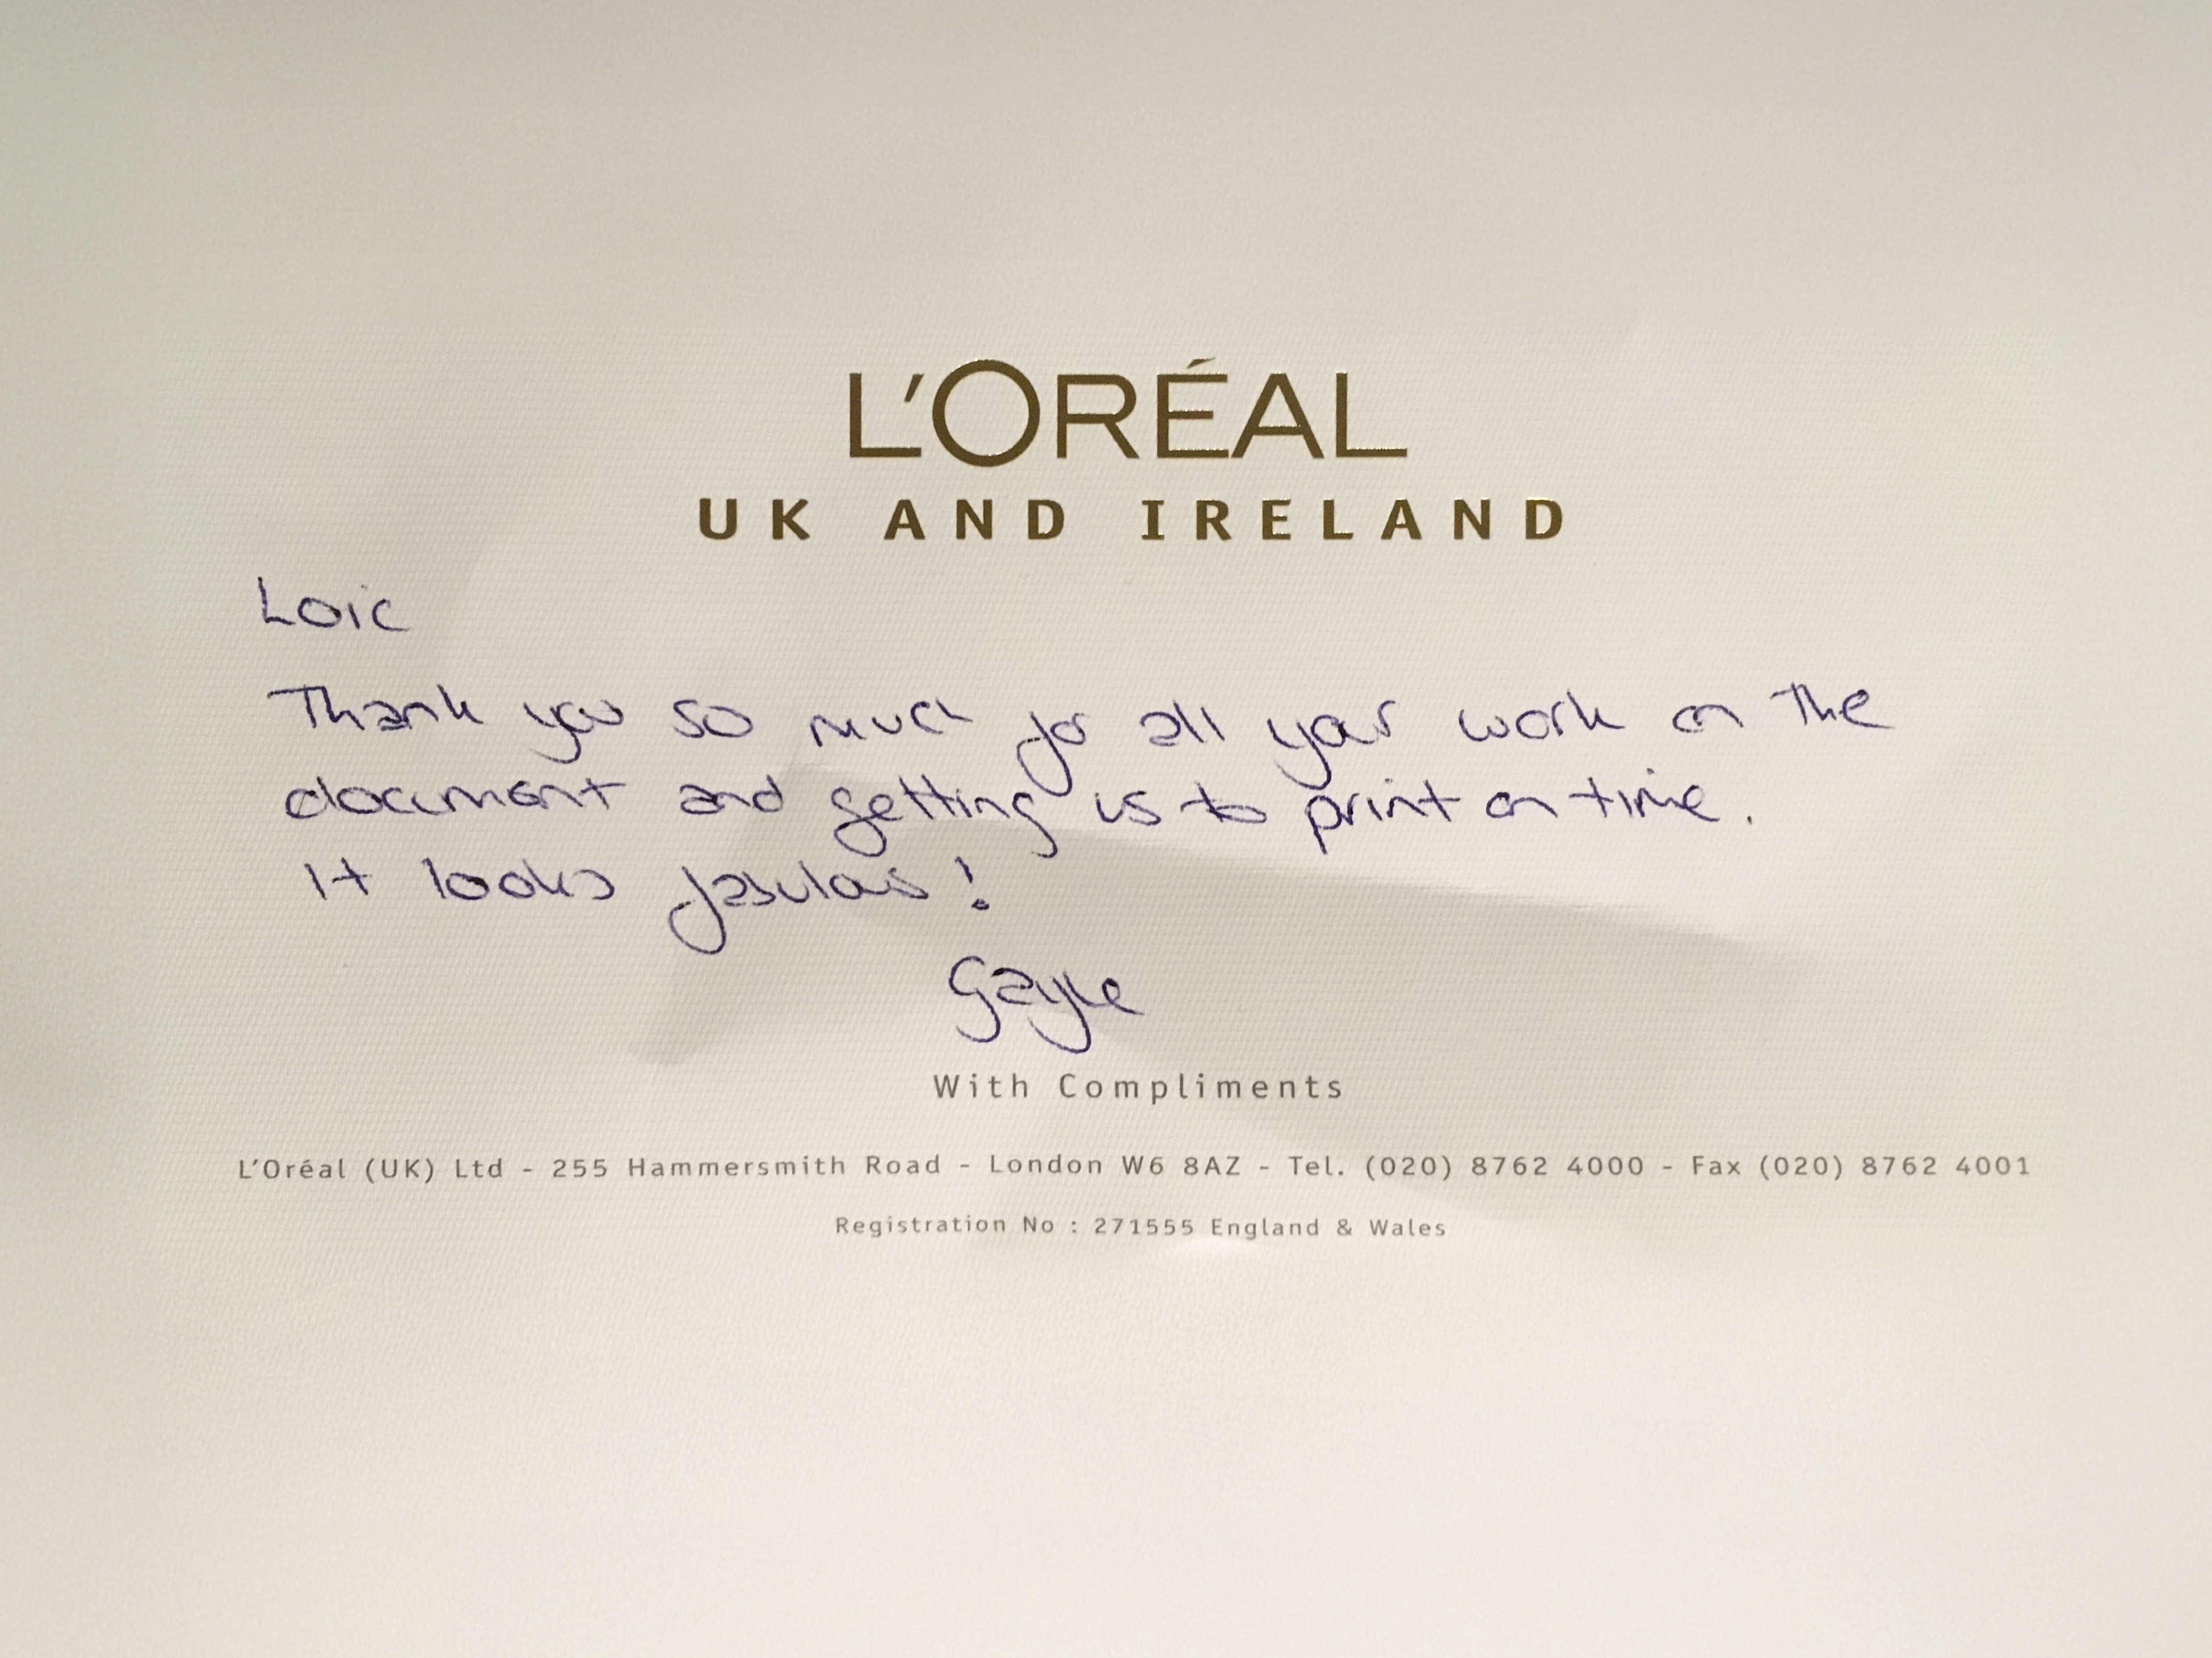 L'ORÉAL
UK AND IRELAND
Loic
Thank you so much for all your work on the
document and getting us to print on time.
It looks fabulous!
Gayle
With Compliments
L'Oréal (UK) Ltd - 255 Hammersmith Road - London W6 8AZ - Tel. (020) 8762 4000 - Fax (020) 8762 4001
Registration No : 271555 England & Wales